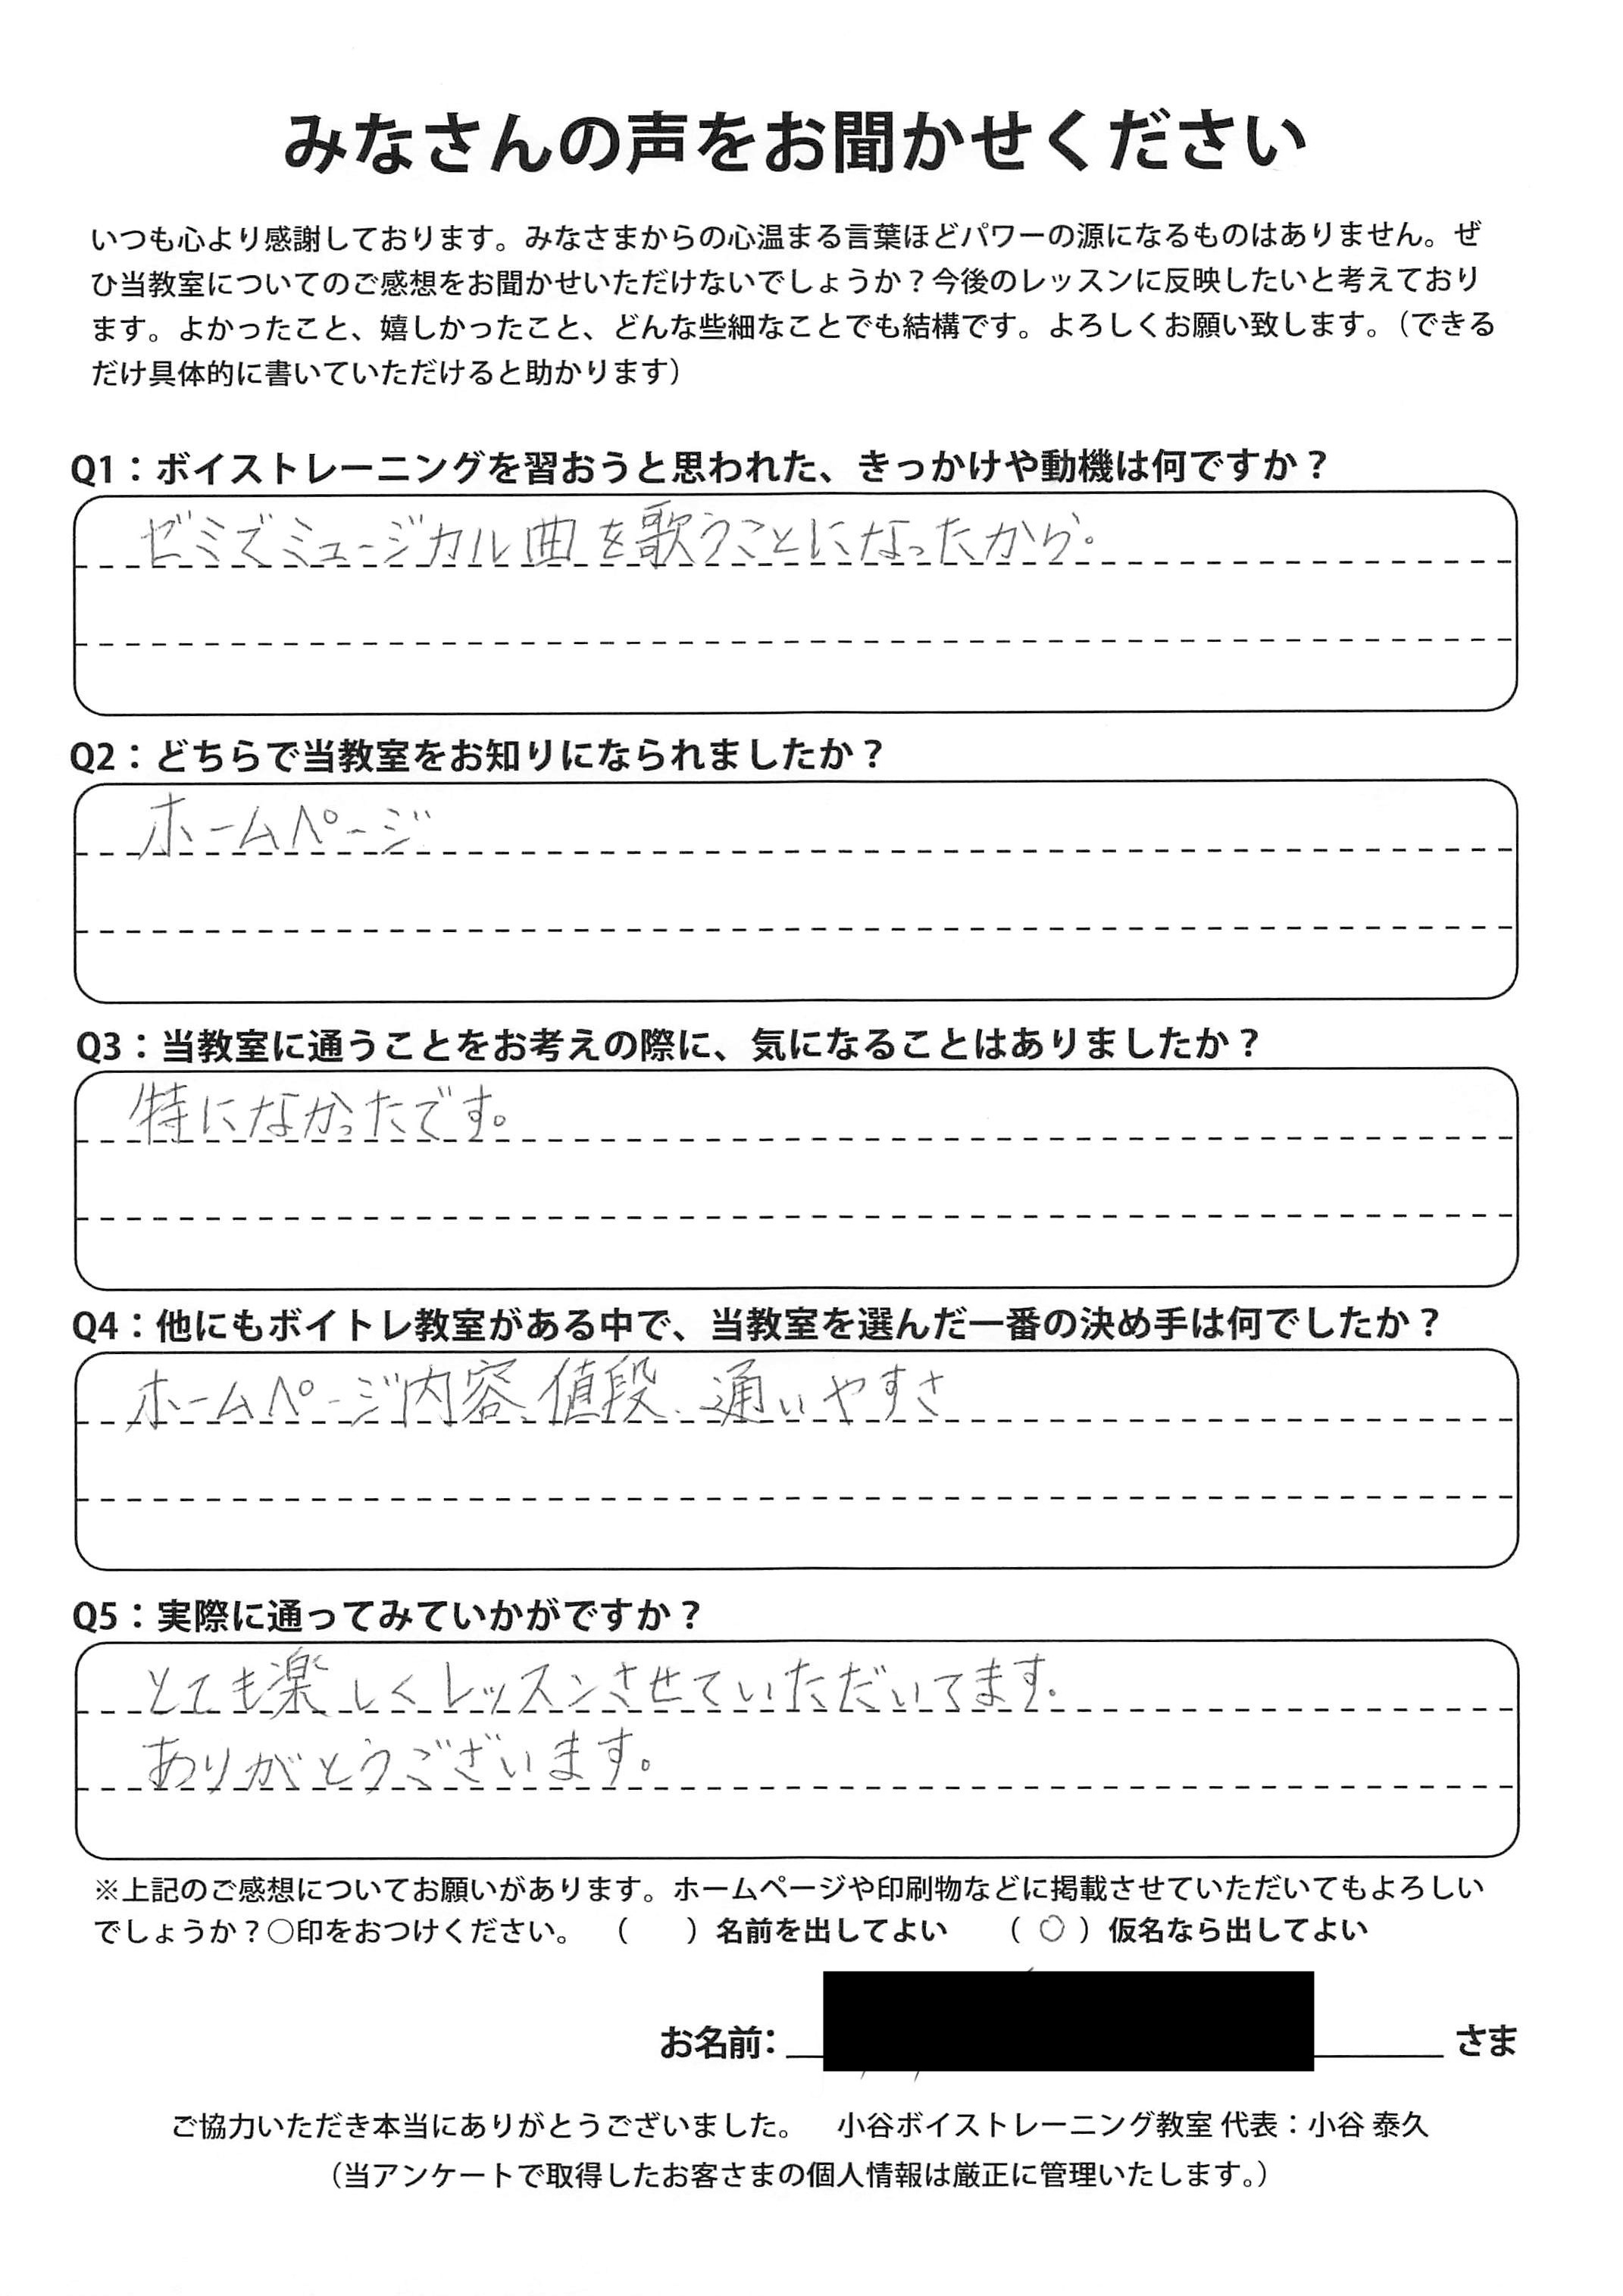 みなさんの声をお聞かせください
いつも心より感謝しております。みなさまからの心温まる言葉ほどパワーの源になるものはありません。ぜ
ひ当教室についてのご感想をお聞かせいただけないでしょうか？今後のレッスンに反映したいと考えており
ます。よかったこと、嬉しかったこと、どんな些細なことでも結構です。よろしくお願い致します。（できる
だけ具体的に書いていただけると助かります）
Q1：ボイストレーニングを習おうと思われた、きっかけや動機は何ですか？
ゼミでミュージカル曲を歌うことになったから。
Q2：どちらで当教室をお知りになられましたか？
ホームページ
Q3：当教室に通うことをお考えの際に、気になることはありましたか？
特になかったです。
Q4：他にもボイトレ教室がある中で、当教室を選んだ一番の決め手は何でしたか？
ホームページ内容、値段、通いやすさ
Q5：実際に通ってみていかがですか？
とても楽しくレッスンさせていただいてます。
ありがとうございます。
※上記のご感想についてお願いがあります。ホームページや印刷物などに掲載させていただいてもよろしい
でしょうか？○印をおつけください。 （　　）名前を出してよい （ ○ ）仮名なら出してよい
お名前： さま
ご協力いただき本当にありがとうございました。 小谷ボイストレーニング教室 代表：小谷 泰久
（当アンケートで取得したお客さまの個人情報は厳正に管理いたします。）